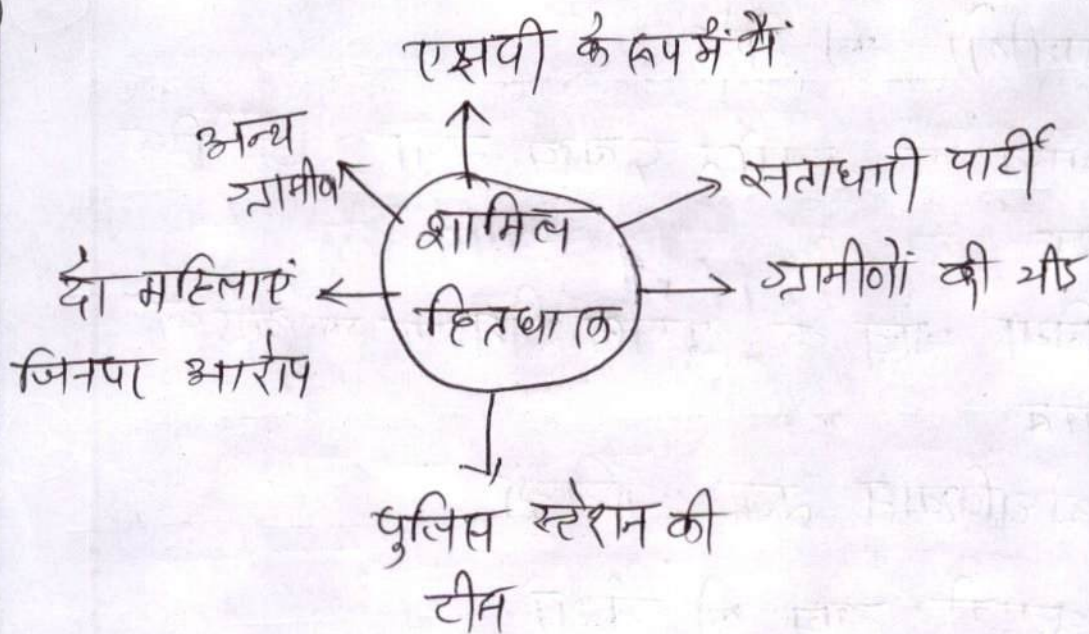 एसपी के रूप में मैं
अन्य
ग्रामीण
सत्ताधारी पार्टी
शामिल
हितधारक
दो महिलाएं
जिनपर आरोप
ग्रामीणों की भीड़
पुलिस स्टेशन की
टीम